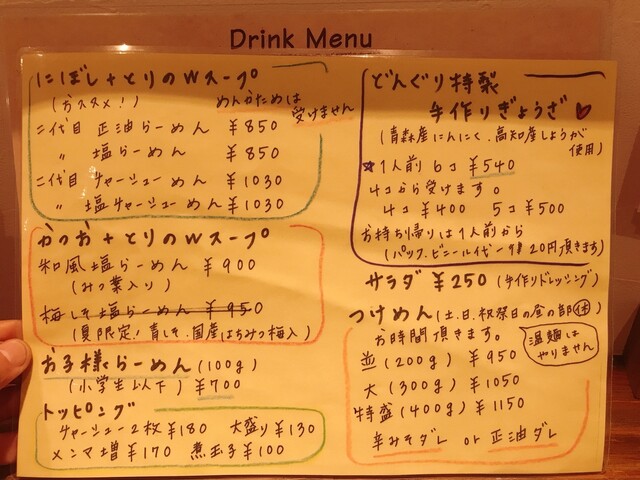 Drink Menu
にぼし+とりのWスープ
(おススメ!) めんかためは
受けません
二代目 正油らーめん ¥850
〃 塩らーめん ¥850
二代目 チャーシューめん ¥1030
〃 塩チャーシューめん ¥1030
かつお+とりのWスープ
和風塩らーめん ¥900
(みつ葉入り)
梅しそ塩らーめん ¥950
(夏限定!青しそ、国産はちみつ梅入)
お子様らーめん(100g)
(小学生以下) ¥700
トッピング
チャーシュー2枚¥180 大盛り¥130
メンマ増¥170 煮玉子¥100
どんぐり特製
手作りぎょうざ♥
(青森産にんにく、高知産しょうが
使用)
★1人前 6コ ¥540
4コから受けます。
4コ ¥400 5コ ¥500
お持ち帰りは1人前から
(パック、ビニール代 20円頂きます)
サラダ ¥250 (手作りドレッシング)
つけめん(土、日、祝祭日の昼の部㊡)
お時間頂きます。
温麺は
やりません
並(200g) ¥950
大(300g) ¥1050
特盛(400g) ¥1150
辛みそダレ or 正油ダレ